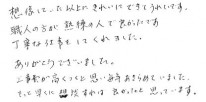 想像していた以上にきれいにできてうれしいです。
職人の方が熟練の人で良かったです
丁寧な仕事をしてくれました。
ありがとうございました。
工事費が高くつくと思い毎年あきらめていました。
もっと早くに相談すれば良かったと思っています。